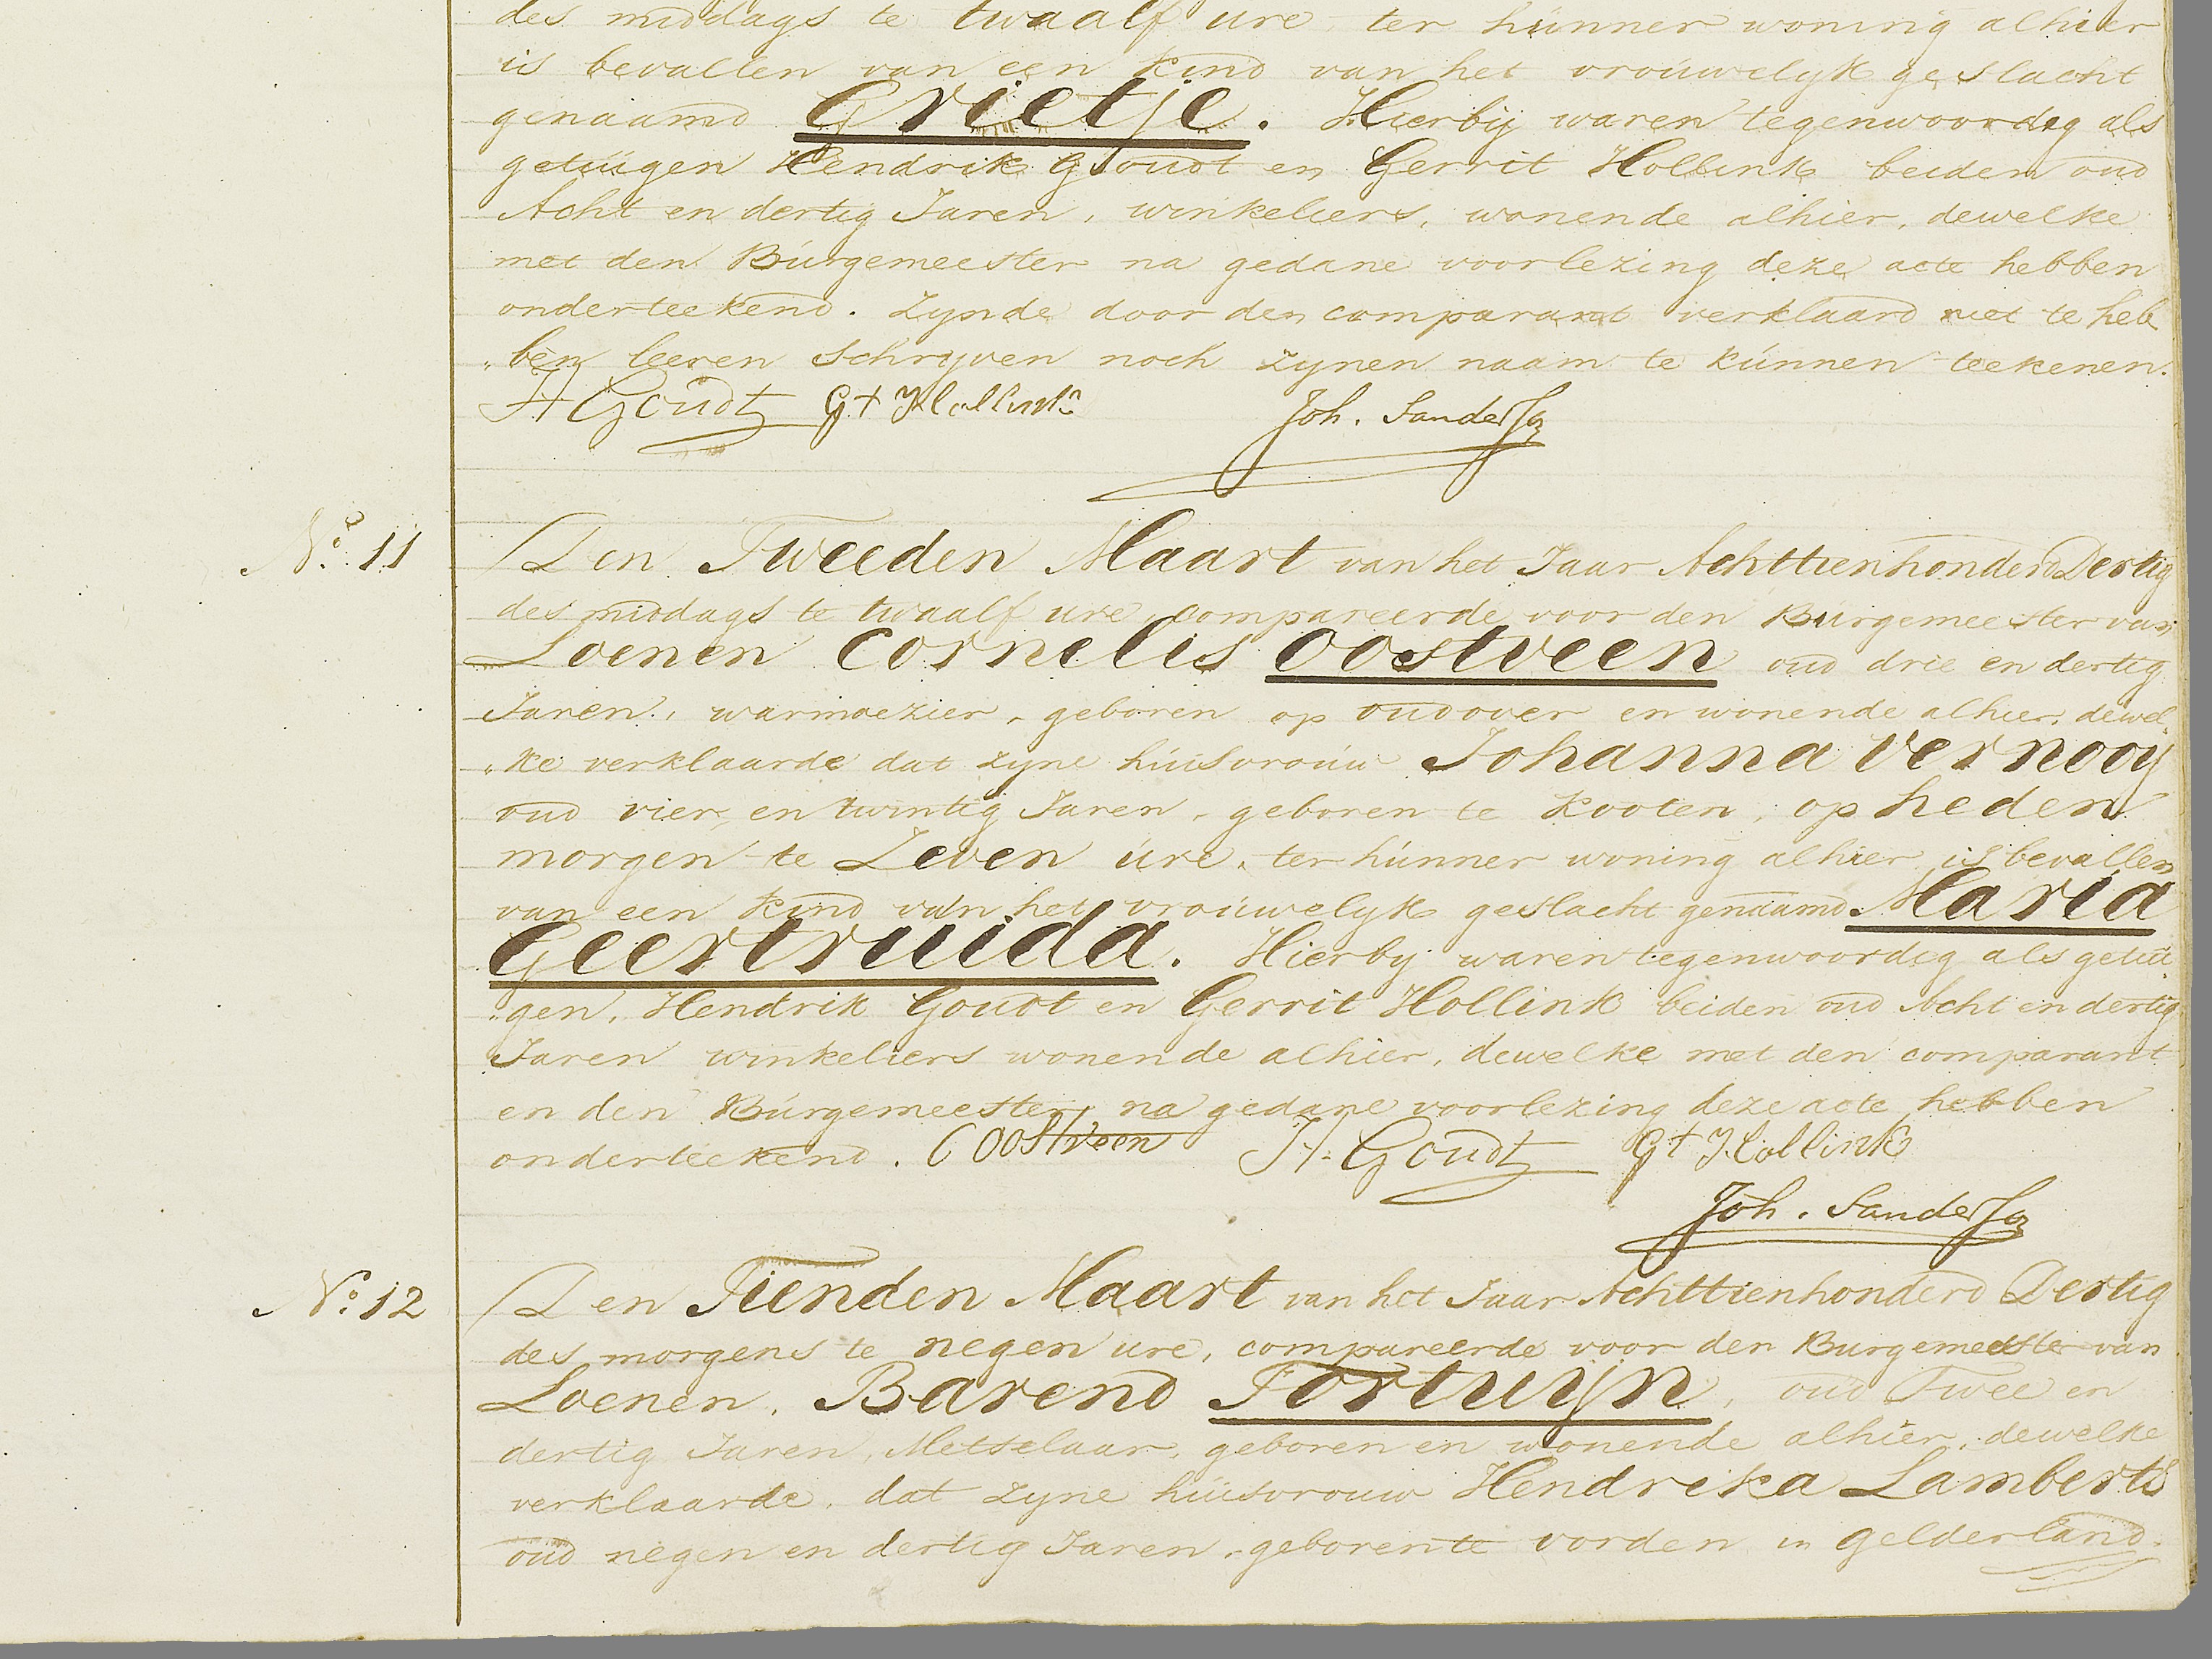 des middags te twaalf ure ter hunner woning alhier
is bevallen van een kind van het vrouwelyk geslacht
genaamd Grietje. Hierbij waren tegenwoordig als
getuigen Hendrik Goudt en Gerrit Hollink beiden oud
Acht en dertig Jaren, winkeliers, wonende alhier, dewelke
met den Burgemeester na gedane voorlezing deze acte hebben
onderteekend. Zynde door den comparant verklaard niet te heb
„ben leeren Schryven noch zynen naam te kunnen teekenen.
H Goudt Gt Hollink Joh. Sanders
No. 11 Den Tweeden Maart van het Jaar Achttienhonderd Dertig
des middags te twaalf ure compareerde voor den Burgemeester van
Loenen Cornelis Oostveen oud drie en dertig
Jaren, warmoezier, geboren op oudover en wonende alhier, dewel„
„ke verklaarde dat zyne huisvrouw Johanna Vernooy
oud vier en twintig Jaren, geboren te Kooten, op heden
morgen te Zeven ure, ter hunner woning alhier is bevallen
van een kind van het vrouwelyk geslacht genaamd Maria
Geertruida. Hierby waren tegenwoordig als getui„
„gen, Hendrik Goudt en Gerrit Hollink beiden oud Acht en dertig
Jaren winkeliers wonende alhier, dewelke met den comparant
en den Burgemeester na gedane voorlezing deze acte hebben
onderteekend. C Oostveen H. Goudt Gt Hollink
Joh. Sanders
No. 12 Den Tienden Maart van het Jaar Achttienhonderd Dertig
des morgens te negen ure, compareerde voor den Burgemeester van
Loenen, Barend Fortuyn, oud Twee en
dertig Jaren, Metselaar, geboren en wonende alhier, dewelke
verklaarde, dat zyne huisvrouw Hendrika Lamberts
oud negen en dertig Jaren, geboren te vorden in Gelderland.